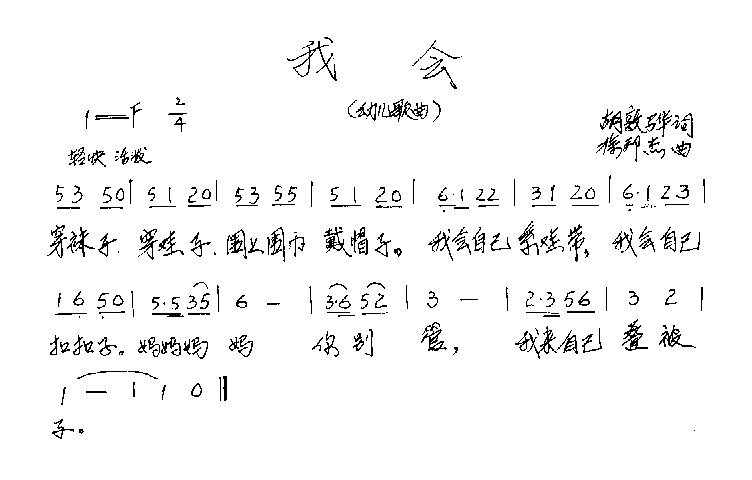 我 会
(幼儿歌曲)
1=F 2/4
胡敦骅词
徐邦杰曲
轻快 活泼
53 50 | 51 20 | 53 55 | 51 20 | 6·1 22 | 31 20 | 6·1 23 |
穿袜子.穿鞋子.围上围巾 戴帽子。我会自己系鞋带,我会自己
16 50 | 5·5 35 | 6 - | 3·6 52 | 3 - | 2·3 56 | 3 2 |
扣扣子。妈妈妈 妈 你别 管, 我来自己 叠 被
1 - 1 1 0 ‖
子。